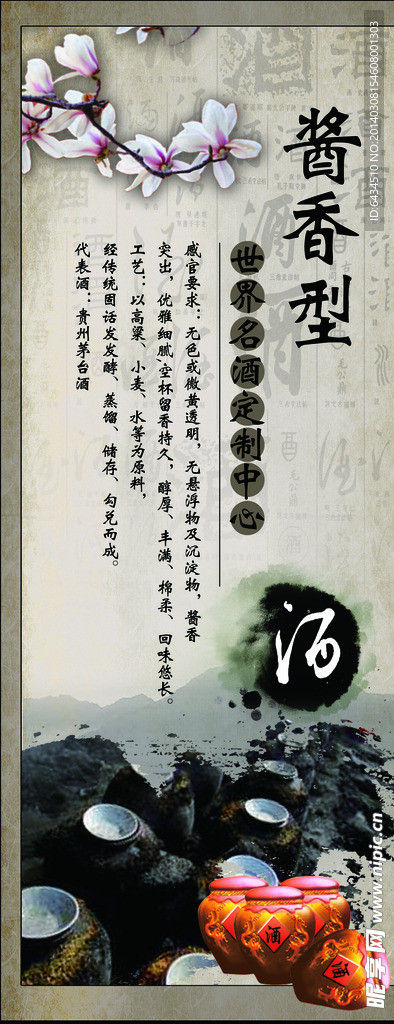 酱香型
世界名酒定制中心
感官要求：无色或微黄透明，无悬浮物及沉淀物，酱香
突出，优雅细腻，空杯留香持久，醇厚、丰满、棉柔、回味悠长。
工艺：以高粱、小麦、水等为原料，
经传统固话发发酵、蒸馏、储存、勾兑而成。
代表酒：贵州茅台酒
酒
酒
酒
昵享网 www.nipic.cn
ID:6434510 NO:20140308154608001303